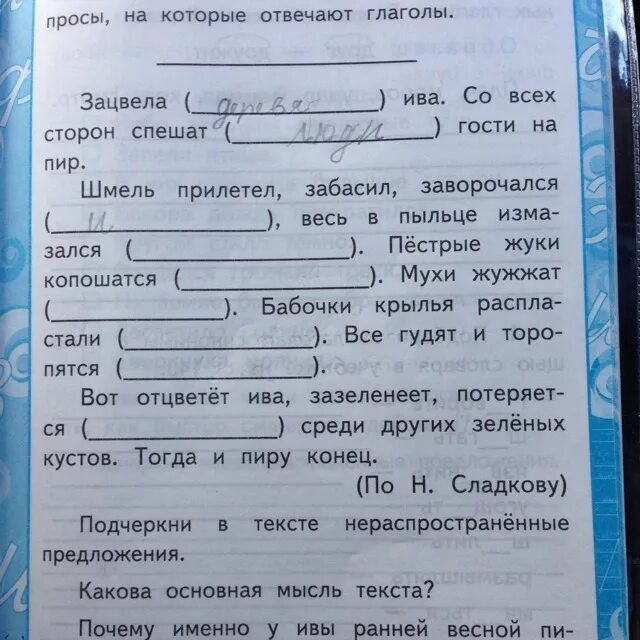 просы, на которые отвечают глаголы.
Зацвела (деревья) ива. Со всех
сторон спешат (люди) гости на
пир.
Шмель прилетел, забасил, заворочался
(и), весь в пыльце изма-
зался (). Пёстрые жуки
копошатся (). Мухи жужжат
(). Бабочки крылья распла-
стали (). Все гудят и торо-
пятся ().
Вот отцветёт ива, зазеленеет, потеряет-
ся () среди других зелёных
кустов. Тогда и пиру конец.
(По Н. Сладкову)
Подчеркни в тексте нераспространённые
предложения.
Какова основная мысль текста?
Почему именно у ивы ранней весной пи-